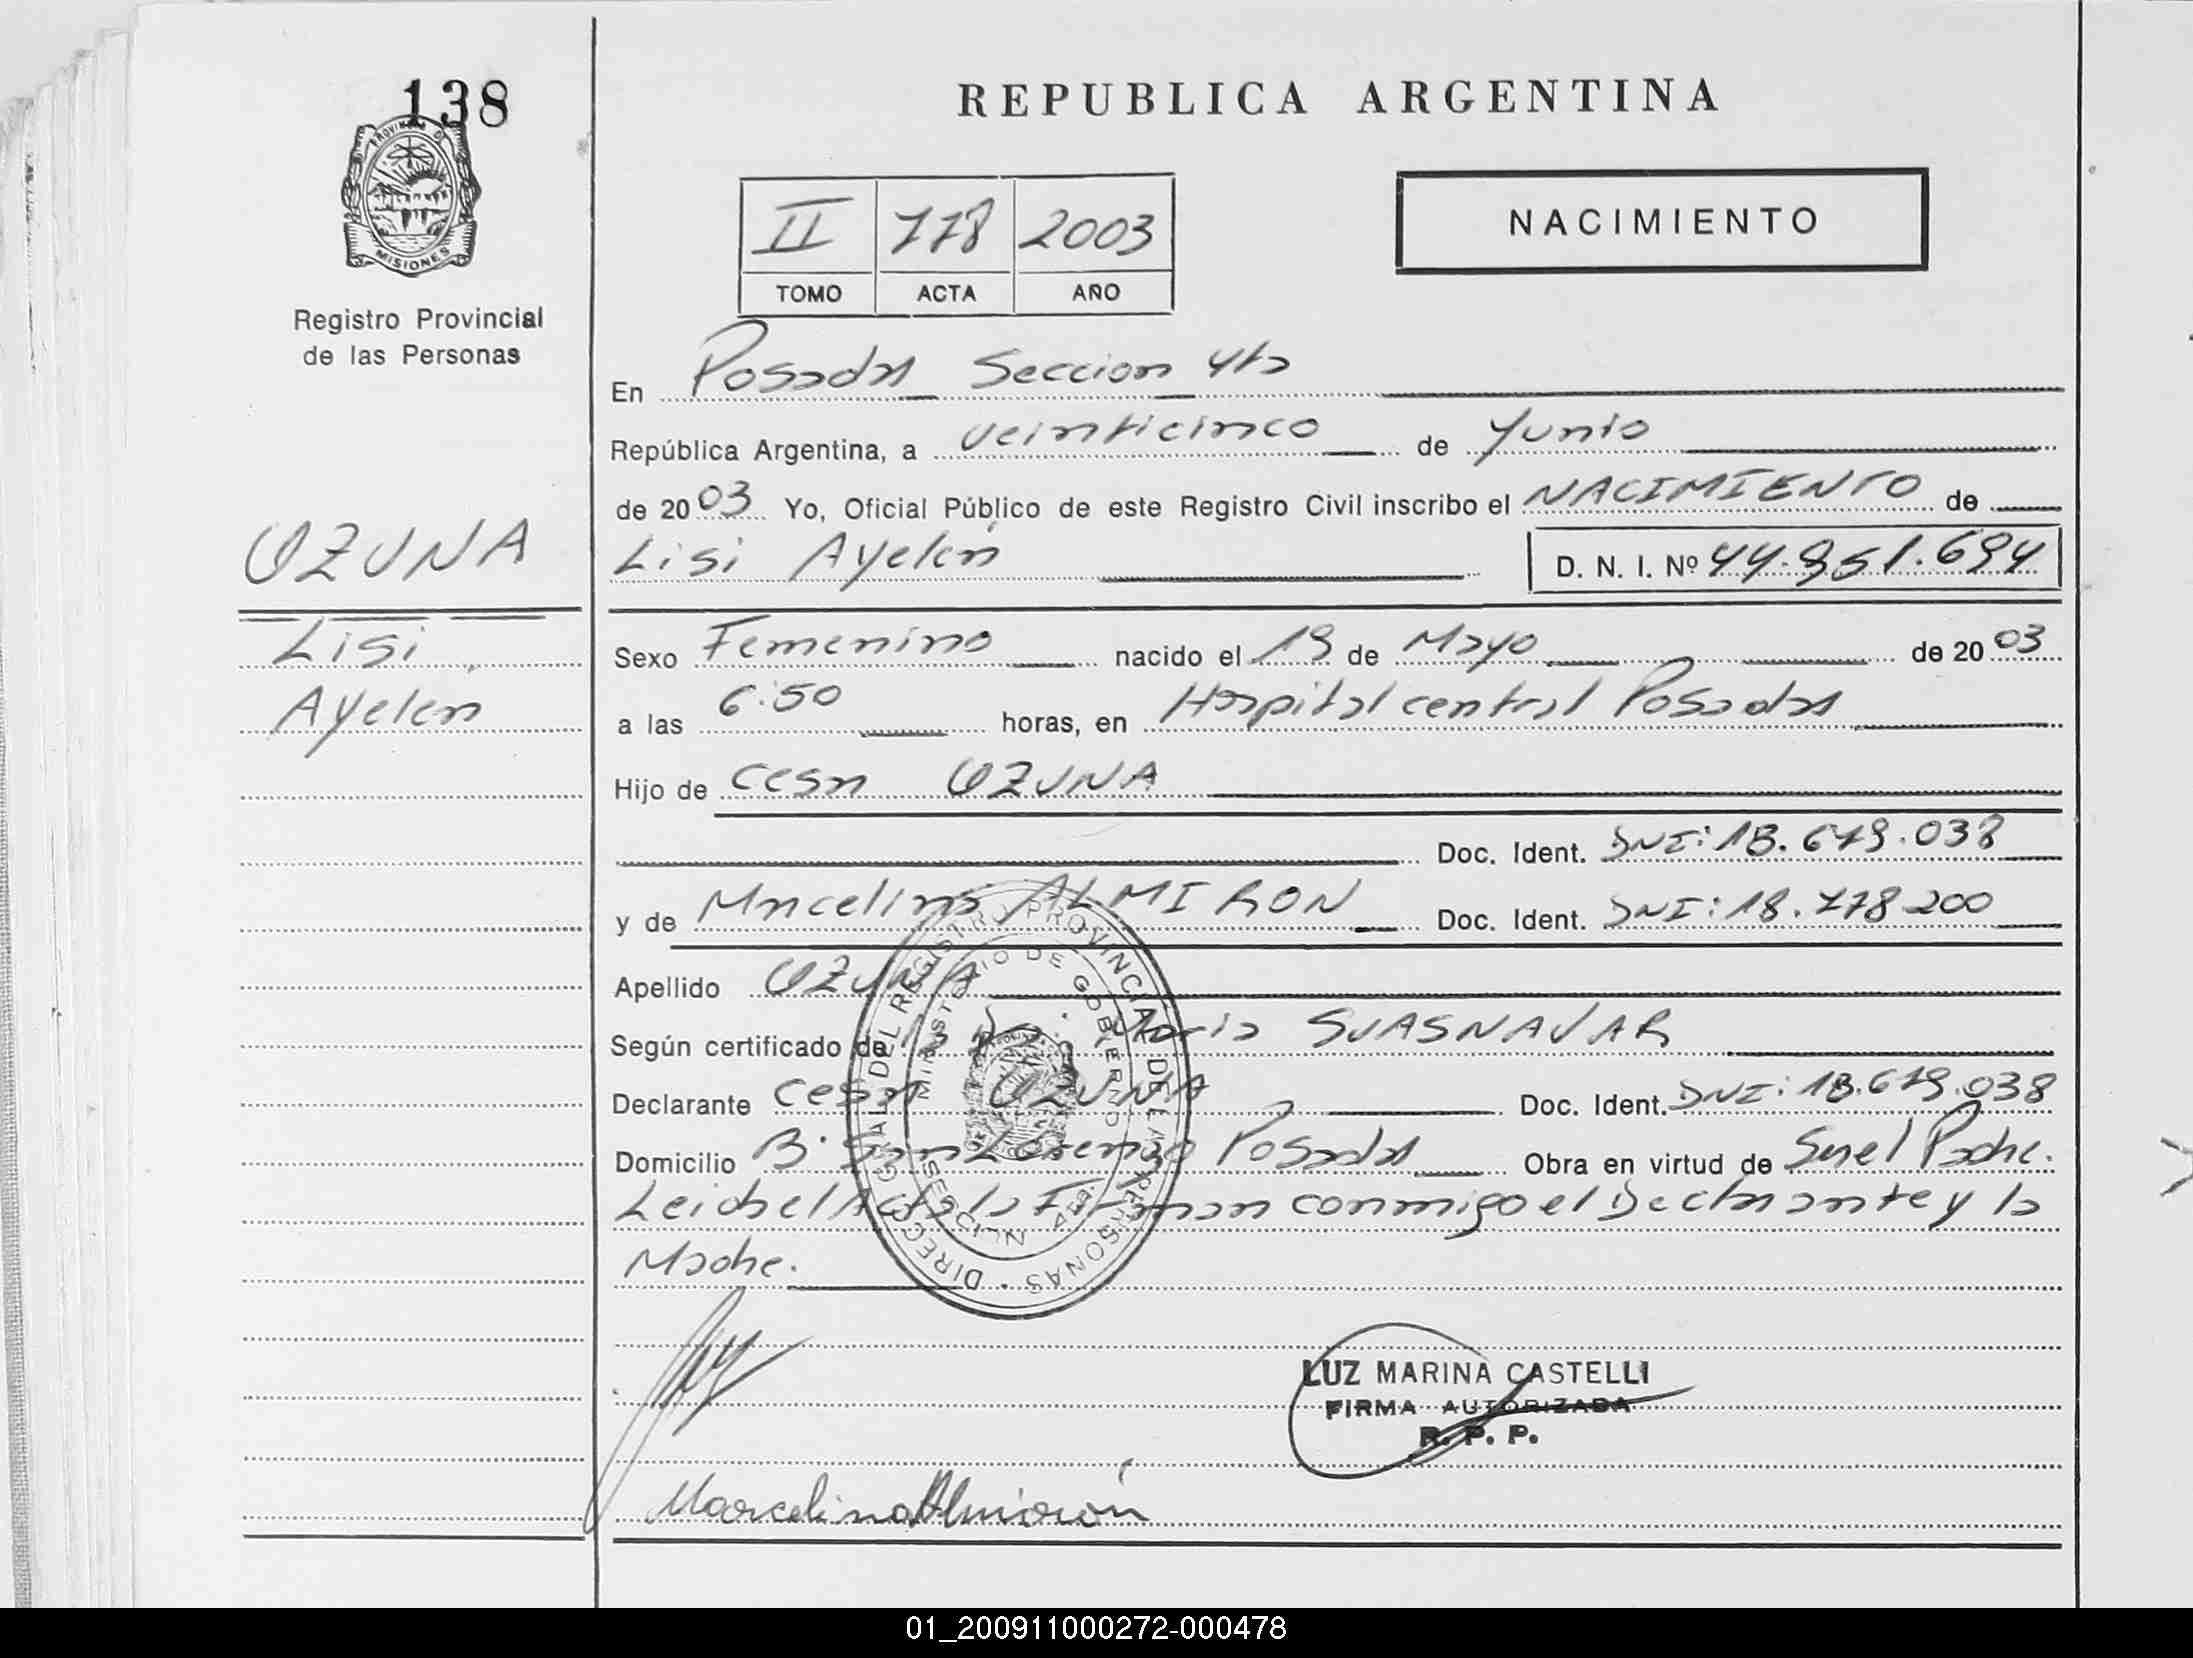 138
REPUBLICA ARGENTINA
PROVINCIA DE
MISIONES
Registro Provincial
de las Personas
II 778 2003
TOMO ACTA AÑO
NACIMIENTO
En Posadas Seccion 4ta
República Argentina, a veinticinco de Junio
de 20 03 Yo, Oficial Público de este Registro Civil inscribo el NACIMIENTO de
OZUNA
Lisi Ayelen D. N. I. Nº 44.951.694
Lisi
Sexo Femenino nacido el 19 de Mayo de 20 03
Ayelen
a las 6:50 horas, en Hospital central Posadas
Hijo de Cesar OZUNA
Doc. Ident. DNI: 18.679.038
y de Marcelina ALMIRON Doc. Ident. DNI: 18.778.200
Apellido OZUNA
Según certificado de la Maria SUASNAVAR
Declarante Cesar OZUNA Doc. Ident. DNI: 18.679.038
Domicilio Bº San Lorenzo Posadas Obra en virtud de Ser el Padre.
Leida el Acta la Firman conmigo el Declarante y la
Madre.
DIRECC. GRAL. DEL REGISTRO PROVINCIAL DE LAS PERSONAS
MINISTERIO DE GOBIERNO
LUZ MARINA CASTELLI
FIRMA AUTORIZADA
R. P. P.
Marcelina Almirón
01_200911000272-000478